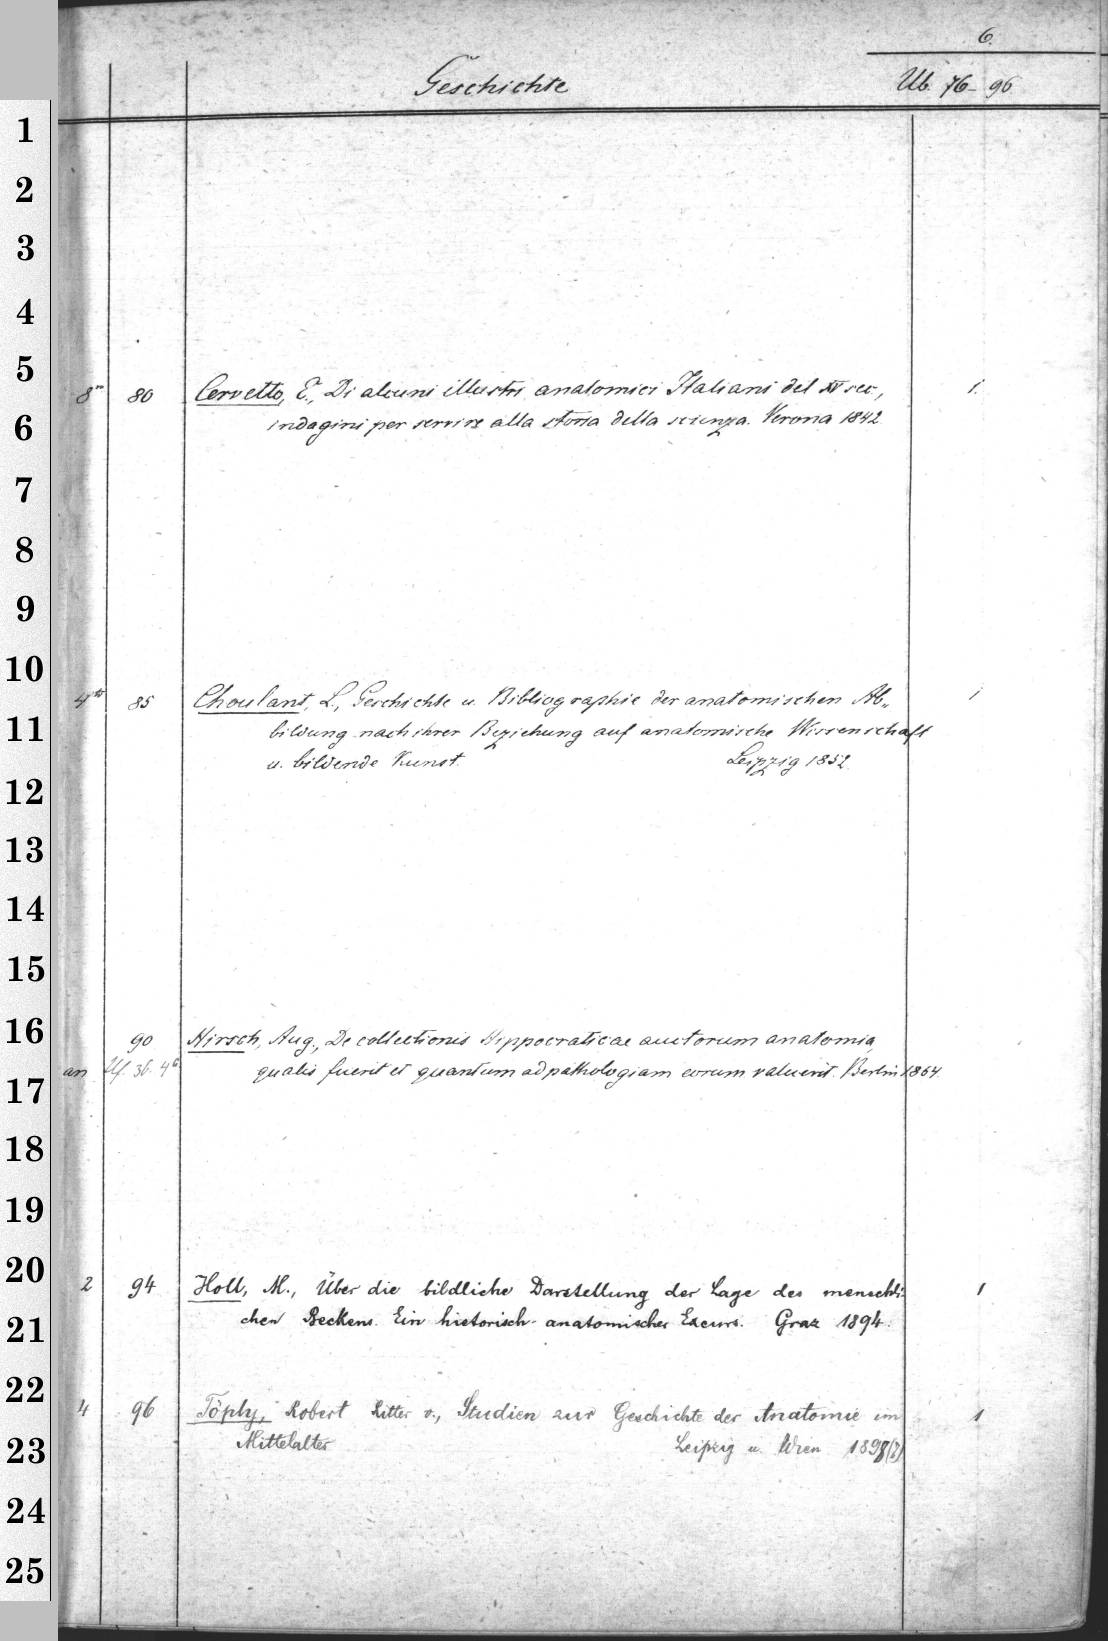 6.
Geschichte Ub. 76-96
1
2
3
4
5
8° 80 Cervetto, G., Di alcuni illustri anatomici Italiani del XV sec., 1.
6 indagini per servire alla storia della scienza. Verona 1842.
7
8
9
10
4to 85 Choulant, L., Geschichte u. Bibliographie der anatomischen Ab- 1
11 bildung nach ihrer Beziehung auf anatomische Wissenschaft
u. bildende Kunst. Leipzig 1852.
12
13
14
15
16 90 Hirsch, Aug., De collectionis Hippocraticae auctorum anatomia,
an Uf. 36. 4° qualis fuerit et quantum ad pathologiam eorum valuerit. Berlin 1864.
17
18
19
20 2 94 Holl, M., Über die bildliche Darstellung der Lage des menschli- 1
21 chen Beckens. Ein historisch-anatomischer Excurs. Graz 1894.
22
4 96 Töply, Robert Ritter v., Studien zur Geschichte der Anatomie im 1
23 Mittelalter Leipzig u. Wien 1898
24
25